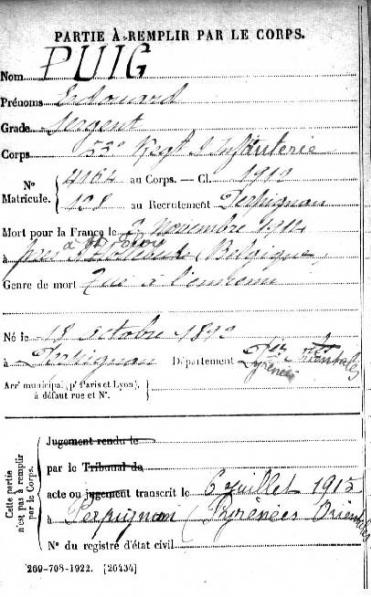 PARTIE À REMPLIR PAR LE CORPS.
Nom PUIG
Prénoms Edouard
Grade sergent
Corps 53e Regt d'Infanterie
N° Matricule. { 4164 au Corps. — Cl. 1910
108 au Recrutement Perpignan
Mort pour la France le 2 Novembre 1914
à (Belgique)
Genre de mort Tué à l'ennemi
Né le 18 octobre 1890
à Perpignan Département Pyrénées Orientales
Arrt municipal (pr Paris et Lyon), à défaut rue et N°.
Cette partie n'est pas à remplir par le Corps.
Jugement rendu le
par le Tribunal de
acte ou jugement transcrit le 6 juillet 1915
à Perpignan (Pyrénées Orientales
N° du registre d'état civil
269-708-1922. [26434]